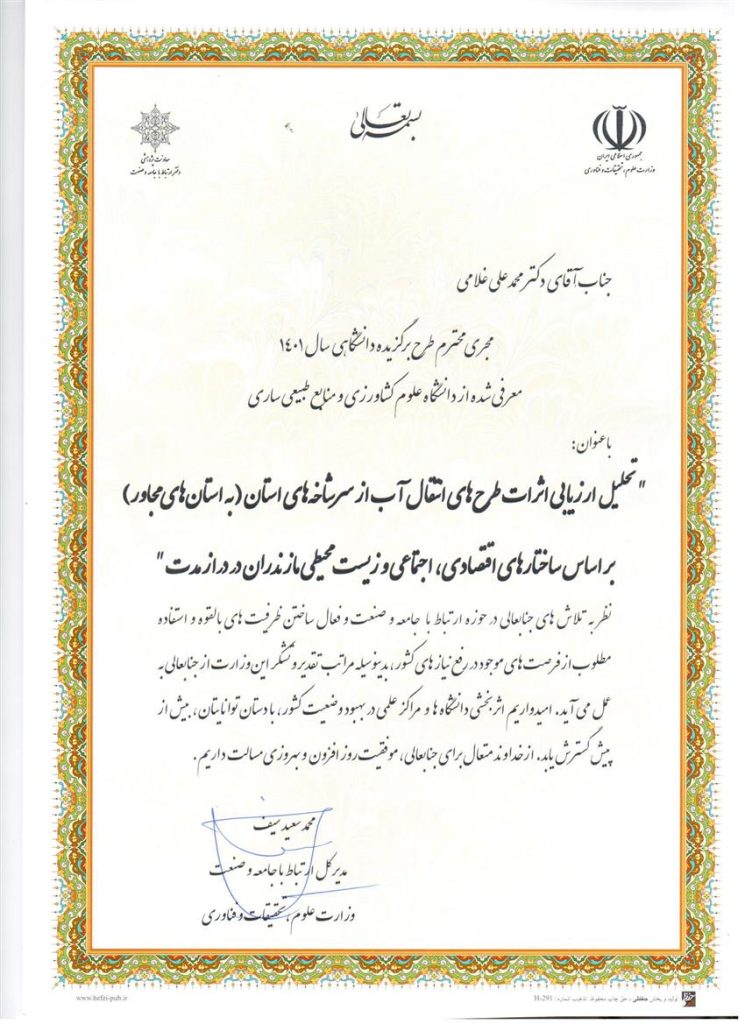 بسمه تعالی
جمهوری اسلامی ایران
وزارت علوم، تحقیقات و فناوری
معاونت پژوهشی
دفتر ارتباط با جامعه و صنعت
جناب آقای دکتر محمدعلی غلامی
مجری محترم طرح برگزیده دانشگاهی سال ۱۴۰۱
معرفی شده از دانشگاه علوم کشاورزی و منابع طبیعی ساری
با عنوان:
"تحلیل ارزیابی اثرات طرح های انتقال آب از سرشاخه های استان (به استان های مجاور)
بر اساس ساختارهای اقتصادی، اجتماعی و زیست محیطی مازندران در دراز مدت"
نظر به تلاش های جنابعالی در حوزه ارتباط با جامعه و صنعت و فعال ساختن ظرفیت های بالقوه و استفاده
مطلوب از فرصت های موجود در رفع نیازهای کشور، بدینوسیله مراتب تقدیر و تشکر این وزارت از جنابعالی به
عمل می آید. امیدواریم اثربخشی دانشگاه ها و مراکز علمی در بهبود وضعیت کشور، با دستان توانایتان، بیش از
پیش گسترش یابد. از خداوند متعال برای جنابعالی، موفقیت روز افزون و بهروزی مسالت داریم.
محمد سعید سیف
مدیر کل ارتباط با جامعه و صنعت
وزارت علوم، تحقیقات و فناوری
www.hefzi-pub.ir
تولید و پخش حفظی، حق چاپ محفوظ. تذهیب شماره: H-291